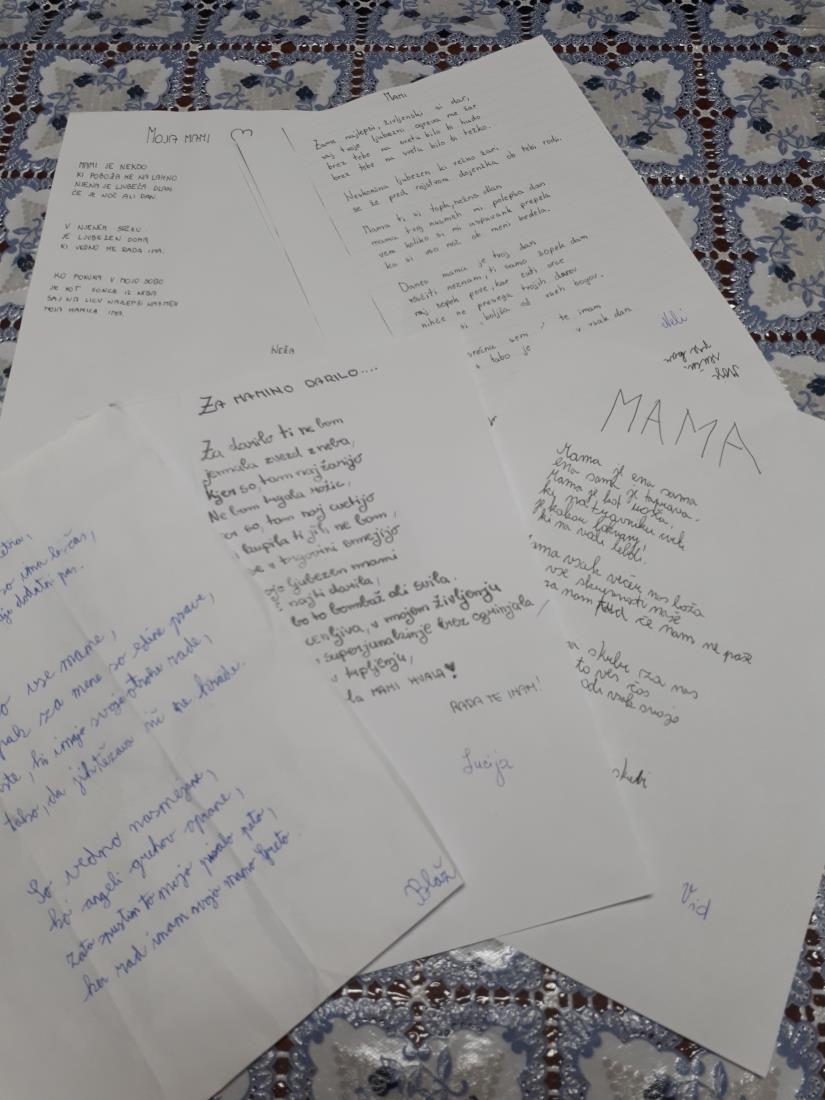 MOJA MAMI
MAMI JE NEKDO
KI POBOŽA ME NALAHNO
NJENA JE LJUBEČA DLAN
ČE JE NOČ ALI DAN.
V NJENEM SRCU
JE LJUBEZEN DOMA
KI VEDNO ME RADA IMA.
KO POKUKA V MOJO SOBO
JE KOT SONCE IZ NEBA
SAJ NA LICU NAJLEPŠI NASMEH
MOJA MAMICA IMA.
NEŽA
MAMI
Zame najlepši, življenski si dar,
saj tvoje ljubezni ogreva me žar
brez tebe na svetu bilo bi hudo
brez tebe na svetu bilo bi težko.
Neskončna ljubezen ki večno žari,
se že pred rojstvom dojenčka ob tebi rodi.
Mama ti si topla, nežna dlan
mama tvoj nasmeh mi polepša dan
vem koliko si mi uspavank prepela
ko si vso noč ob meni bedela.
Danes mama je tvoj dan
voščiti neznam, ti samo šopek dam
naj šopek pove, kar čuti srce
nihče ne presega tvojih darov
si, boljša od vseh bogov.
srečna sem, te imam
s tabo je v vsak dan
Neli
ZA MAMINO DARILO....
Za darilo ti ne bom
jemala zvezd z neba,
kjer so, tam naj žarijo
Ne bom trgala rožic,
so, tam naj cvetijo
kupila ti jih ne bom,
v trgovini
ljubezen mami
najti darila,
bo to bombaž ali svila.
cenljiva, v mojem življenju
superjunakinje brez ogrinjala
v življenju,
MAMI HVALA! ♥
RADA TE IMAM!
Lucija
MAMA
Mama je ena sama
ena sama je taprava.
Mama je kot rožca,
ki na travniku cveti
je kakou lokvanj!
ki na vodi lebdi.
vsak večer nas boža
vse skupnosti naše
za nam tud če nam ne paše
skubi za nas
to ves čas
odi vsak svojo
skubi
Vid
ima le čas,
dodatni pas.
vse mame,
pak za mene so edine prave,
ste, ki imajo svoje otroke rade,
tako, da jih težava nič ne krade.
So vedno nasmejane,
kot angeli grehov oprane,
zato spustim to mojo pisalo peto,
ker rad imam svojo mamo
Blaž